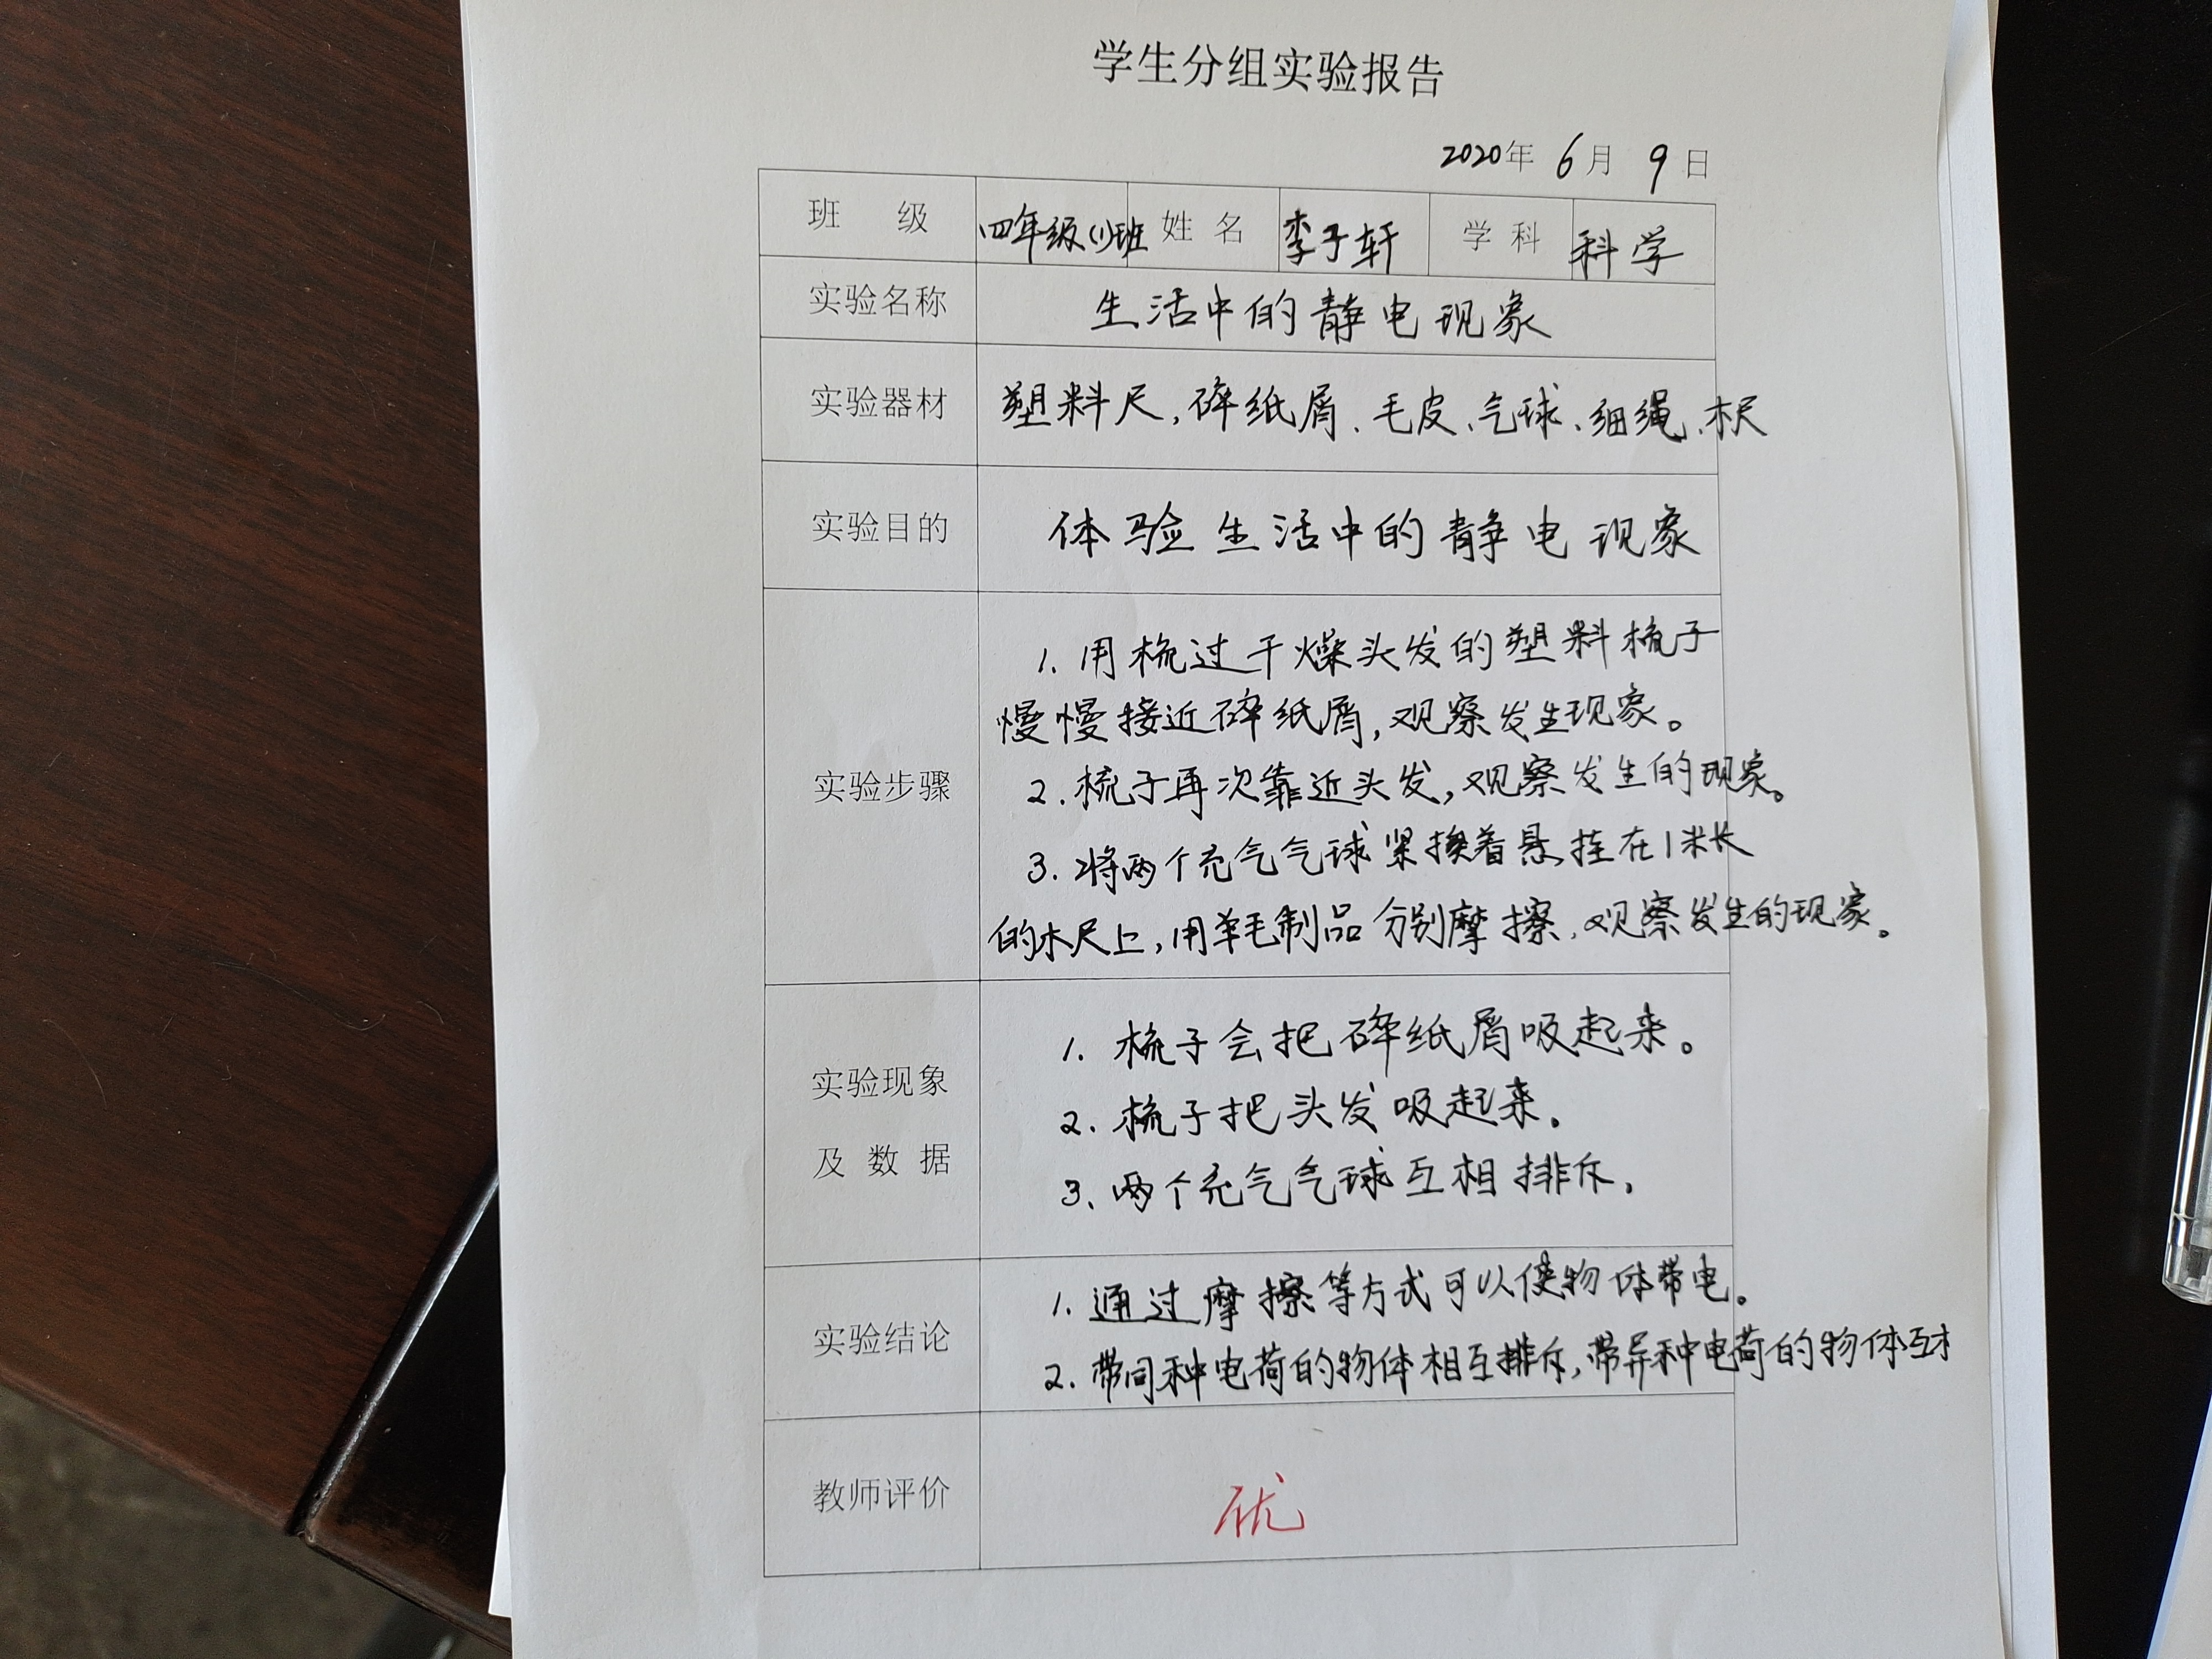 学生分组实验报告
2020年 6月 9日
班 级 四年级(1)班 姓名 李子轩 学科 科学
实验名称 生活中的静电现象
实验器材 塑料尺,碎纸屑、毛皮、气球、细绳、木尺
实验目的 体验生活中的静电现象
实验步骤
1. 用梳过干燥头发的塑料梳子
慢慢接近碎纸屑,观察发生现象。
2. 梳子再次靠近头发,观察发生的现象。
3. 将两个充气气球紧挨着悬挂在1米长
的木尺上,用羊毛制品分别摩擦,观察发生的现象。
实验现象
及数据
1. 梳子会把碎纸屑吸起来。
2. 梳子把头发吸起来。
3、两个充气气球互相排斥,
实验结论
1. 通过摩擦等方式可以使物体带电。
2. 带同种电荷的物体相互排斥,带异种电荷的物体互
教师评价 优